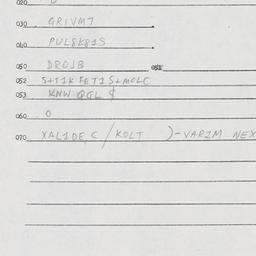 020
030 GRIVM7
040 PUL8K81S
050 DROJB 051
052 S+T1KFET1S+MOLC
053 KNW QGL $
060 0
070 XAL1DE, C / KOLT )-VAR2M NEX